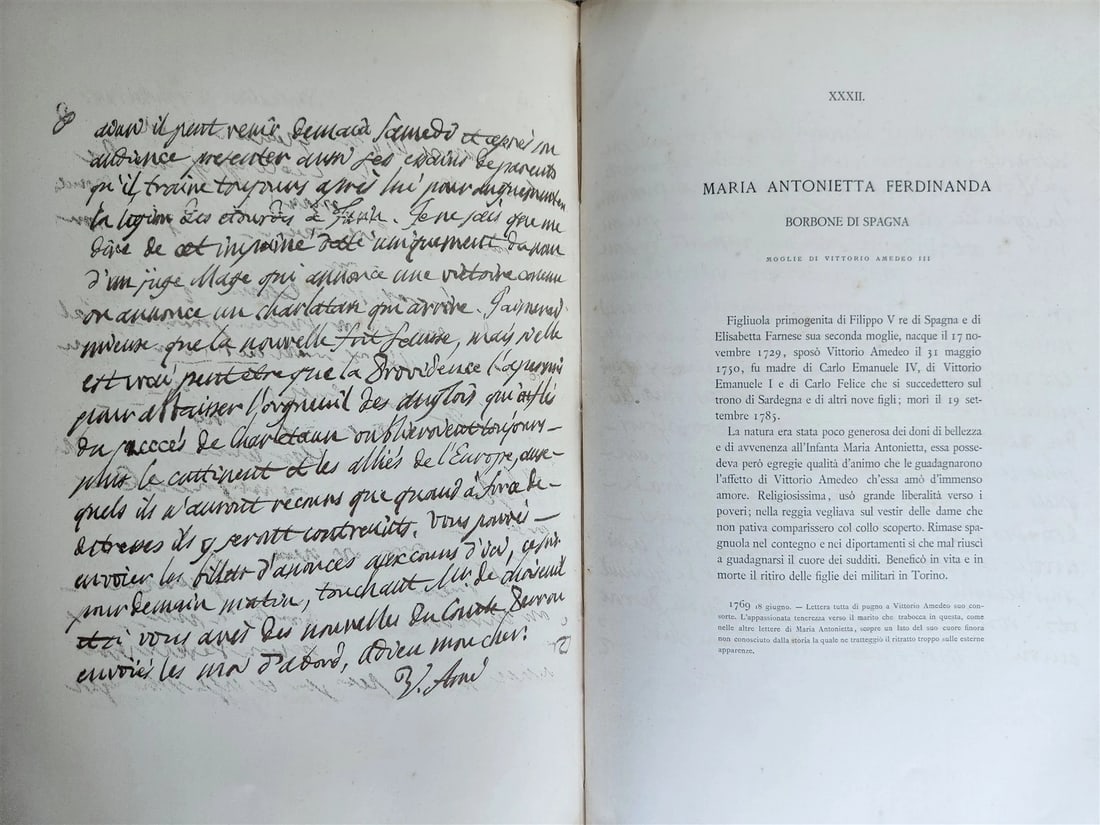 ainsi il peut venir demain samedi et après son
audience presenter aussi ses essains de parents
qu'il traine toujours après lui pour augmenter
la legion des etourdis à Turin. Je ne sais que me
dire de cet imprimé datté uniquement du nom
d'un juge Mage qui annonce une victoire comme
on annonce un charlatan qui arrive. J'aimerai
mieux que la nouvelle fut fausse, mais si elle
est vraï peut etre que la Providence l'a permis
pour abbaisser l'orgueuil des anglois qui enflés
du succés de Charlstaun oublieroient toujours
plus le continent et les alliés de l'Europe, aux-
quels ils n'auront recours que quand à force de
detresses ils y seront contreints. Vous pouvés
envoier les billets d'anonces aux cours d'ici,
pour demain matin, touchant Mr. de Choiseul
et si vous avés des nouvelles du Comte
envoiés les moi d'abord, adieu mon cher.
V. Amé
XXXII.
MARIA ANTONIETTA FERDINANDA
BORBONE DI SPAGNA
MOGLIE DI VITTORIO AMEDEO III
Figliuola primogenita di Filippo V re di Spagna e di
Elisabetta Farnese sua seconda moglie, nacque il 17 no-
vembre 1729, sposò Vittorio Amedeo il 31 maggio
1750, fu madre di Carlo Emanuele IV, di Vittorio
Emanuele I e di Carlo Felice che si succedettero sul
trono di Sardegna e di altri nove figli; morì il 19 set-
tembre 1785.
La natura era stata poco generosa dei doni di bellezza
e di avvenenza all'Infanta Maria Antonietta, essa posse-
deva però egregie qualità d'animo che le guadagnarono
l'affetto di Vittorio Amedeo ch'essa amò d'immenso
amore. Religiosissima, usò grande liberalità verso i
poveri; nella reggia vegliava sul vestir delle dame che
non pativa comparissero col collo scoperto. Rimase spa-
gnuola nel contegno e nei diportamenti sì che mal riuscì
a guadagnarsi il cuore dei sudditi. Beneficò in vita e in
morte il ritiro delle figlie dei militari in Torino.
1769 18 giugno. — Lettera tutta di pugno a Vittorio Amedeo suo con-
sorte. L'appassionata tenerezza verso il marito che trabocca in questa, come
nelle altre lettere di Maria Antonietta, scopre un lato del suo cuore finora
non conosciuto dalla storia la quale ne tratteggiò il ritratto troppo sulle esterne
apparenze.